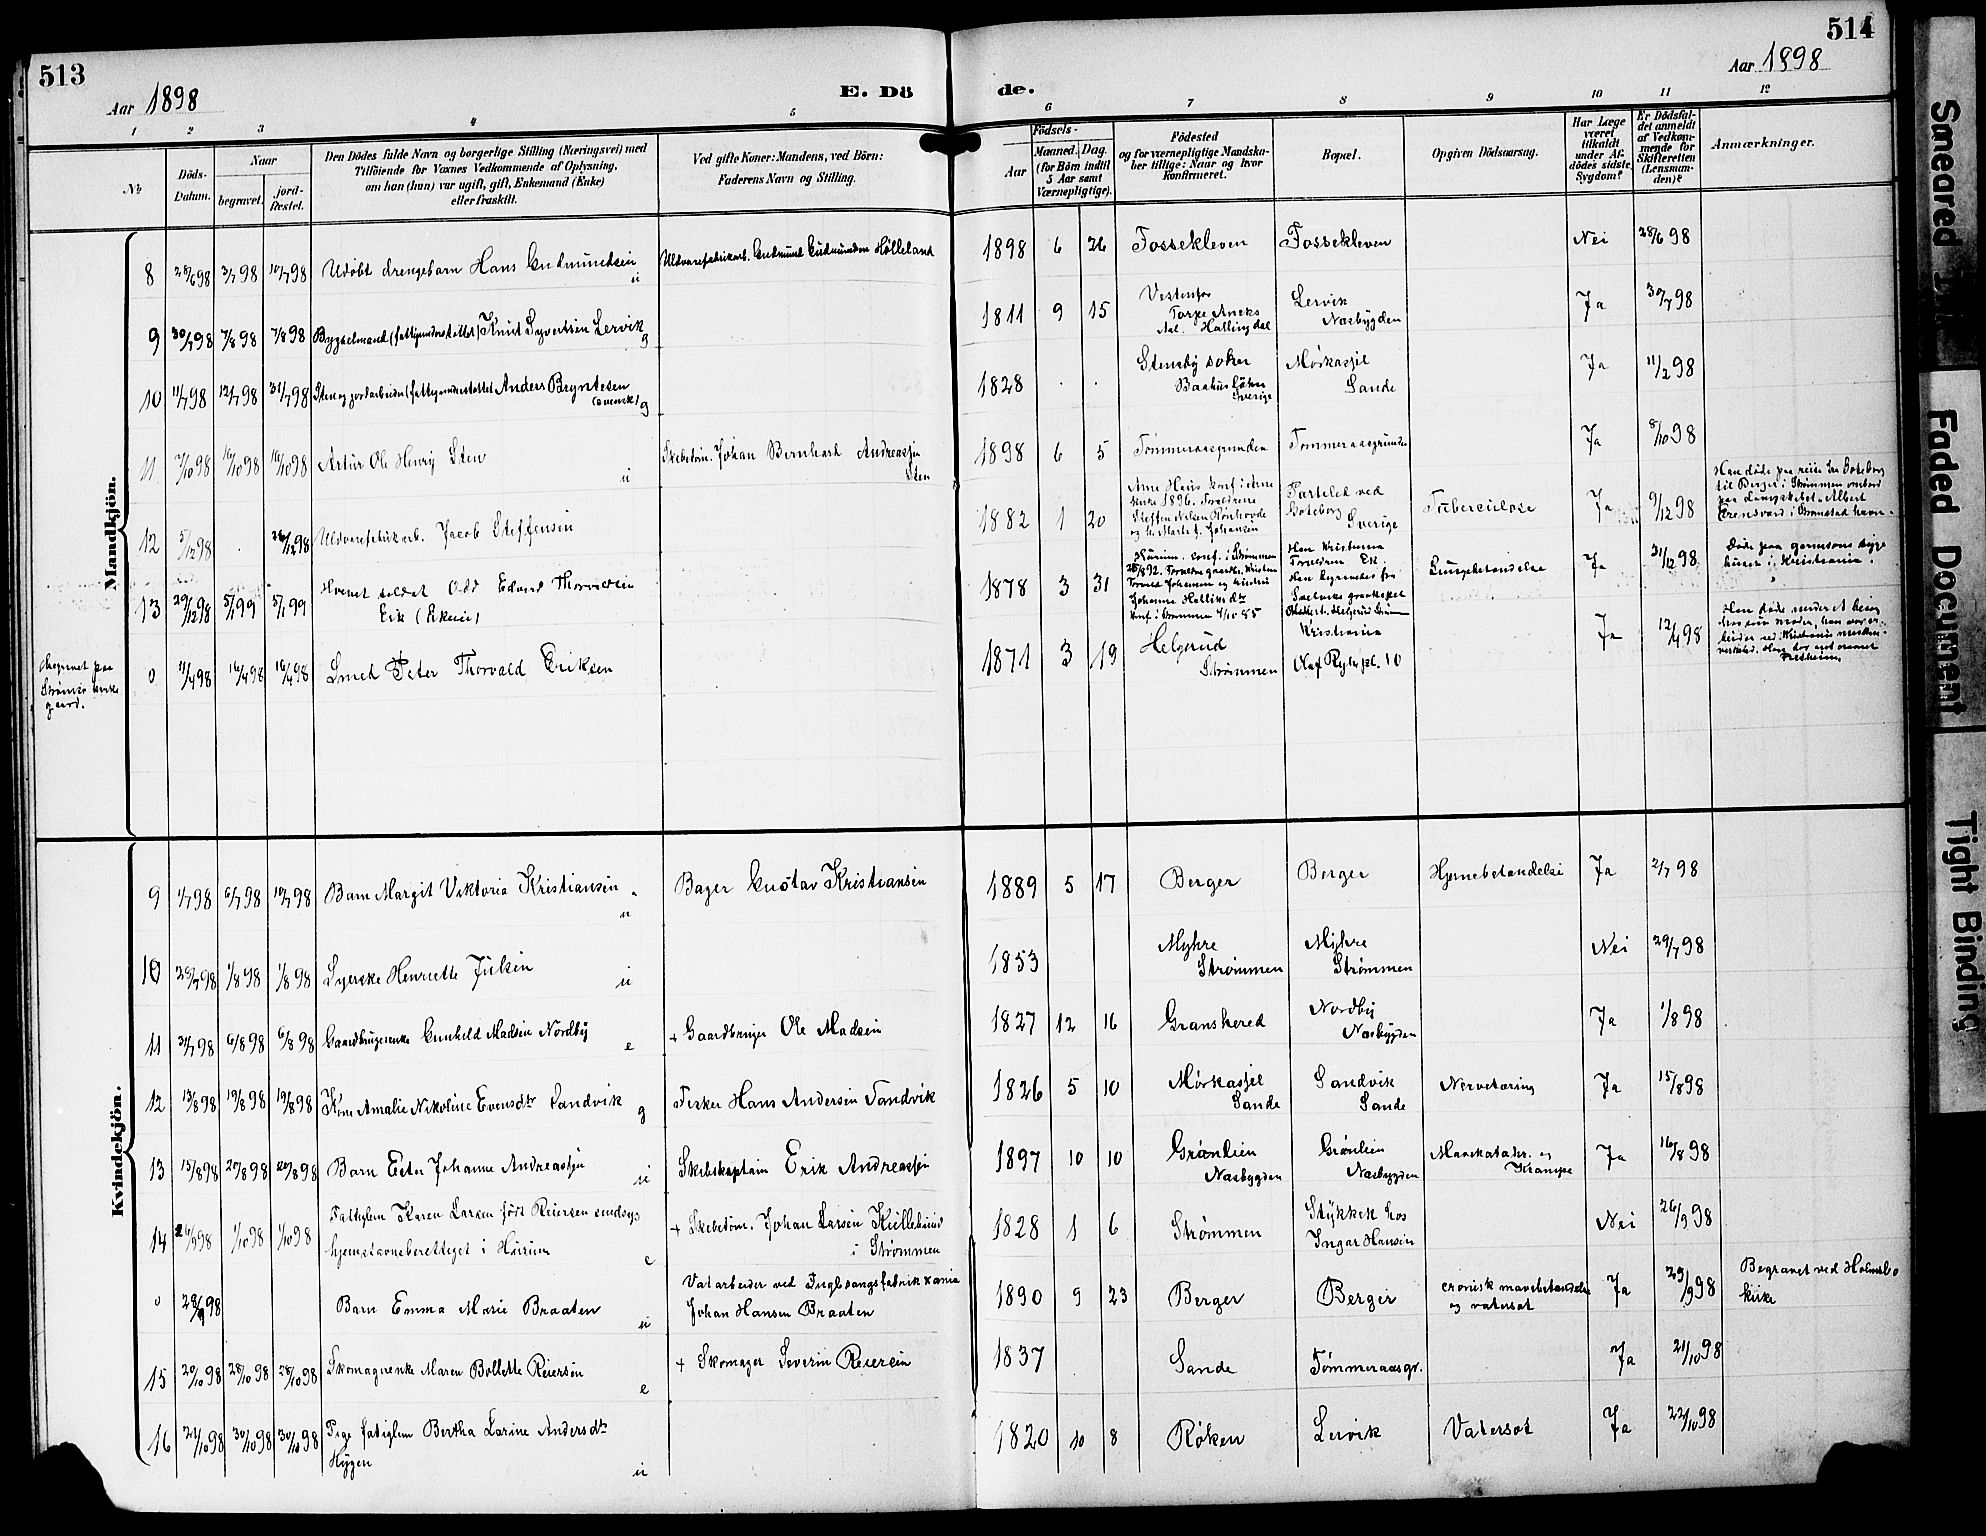 513
514
Aar 1898
Aar 1898
E. Dö
de.
1 2 3 4 5 6 7 8 9 10 11 12
No
Döds-
Datum.
Naar
begravet.
jord-
fæstet.
Den Dödes fulde Navn og borgerlige Stilling (Næringsvei) med
Tilföiende for Voxnes Vedkommende af Oplysning,
om han (hun) var ugift, gift, Enkemand (Enke)
eller fraskilt.
Ved gifte Koner: Mandens, ved Börn:
Faderens Navn og Stilling.
Födsels-
Aar
Maaned. Dag.
(for Börn indtil
5 Aar samt
Værnepligtige).
Födested
og for værnepligtige Mandska-
ber tillige: Naar og hvor
konfirmeret.
Bopæl.
Opgiven Dödsaarsag.
Har Læge
været
tilkaldt
under Af-
dödes sidste
Sygdom?
Er Dödsfal-
det anmeldt
af Vedkom-
mende for
Skifteretten
(Lensman-
den)?
Anmærkninger.
Mandkjön.
8 28/6 98 3/7 98 10/7 98 Udøbt drengebarn Hans Gudmundsen u
Uldvarefabrikarb. Gudmund Gudmundsen Hølleland
1898 6 26 Fossekleven Fossekleven Nei 28/6 98
9 30/7 98 7/8 98 7/8 98 Bygselmand (fattigunderstøttet) Knut Syvertsen Lervik g
1811 9 15 Vestenfor
Torpe Aneks
Aal. Hallingdal
Lervik
Næsbygden
Ja 30/7 98
10 11/7 98 12/7 98 31/7 98 Sten og jordarbeider (fattigunderstøttet Anders Bryntesen
(svensk) g
1828 . . Stensby soken
Baahus Løhn
Sverige
Mørkasjel
Sande
Ja 11/2 98
11 7/10 98 16/10 98 16/10 98 Artur Ole Henry Sten u
Skibstøm. Johan Bernhard Andreassen
Sten
1898 6 5 Tømmeraasgrunden Tømmeraasgrunden Ja 8/10 98
12 5/12 98 . 26/12 98 Uldvarefabrikarb. Jacob Steffensen
1882 1 20
kirke 1896. Forældrene
Steffen Nilsen
Johansen
Parteled ved
Gøteborg
Sverige
Tuberculose Ja 9/12 98
Han døde paa reise fra Gøteborg
til Berger i Strømmen ombord
paa Dampskibet Albert
13 29/12 98 5/1 99 5/1 99 Hvervet soldat Odd Edvard Thorvaldsen
Eik (Ekeli)
1878 3 31 Hurum. conf. i Strømmen
Johanne
konf. i Strømmen
Han Kristiania
Forældrene Eik.
Han begravedes fra
Lungebetændelse Ja 31/12 98
Døde paa garnisons syge
huset i Kristiania.
Begravet paa
Strømsø kirke
gaard.
0 11/4 98 16/4 98 16/4 98 Smed Peter Thorvald Eriksen
1871 3 19 Helgerud
Strømmen
Kristiania
Olaf Ryes pl. 10
Ja 12/4 98
Han døde under et besøg
hos sin moder, han var ar-
beider ved Kristiania mekan.
verksted.
Kvindekjön.
9 1/7 98 6/7 98 10/7 98 Barn Margit Viktoria Kristiansen u
Bager Gustav Kristiansen
1889 5 17 Berger Berger Hjernebetændelse Ja 2/7 98
10 28/7 98 1/8 98 1/8 98 Syerske Henriette Julsen u
1853 Myhre
Strømmen
Myhre
Strømmen
Nei 29/7 98
11 31/7 98 6/8 98 6/8 98 Gaardbrugerenke Gunhild Madsen Nordby e
+ Gaardbruger Ole Madsen
1827 12 16 Gransherred Nordby
Næsbygden
Ja 1/8 98
12 13/8 98 19/8 98 19/8 98 Kone Amalie Nikoline Evensdtr Sandvik g
Fisker Hans Andersen Sandvik
1826 5 10 Mørkasjel
Sande
Sandvik
Sande
Nervetæring Ja 15/8 98
13 15/8 98 20/8 98 20/8 98 Barn Ester Johanne Andreassen u
Skibskaptain Erik Andreassen
1897 10 10 Grønlien
Næsbygden
Grønlien
Næsbygden
Mavekatahr. og
Krampe
Ja 16/8 98
14 26/9 98 1/10 98 1/10 98 Fattiglem Karen Larsen født Reiersen sindsyg
hjemstavnsberettiget i Hurum e
+ Skibstøm. Johan Larsen
i Strømmen
1828 1 6 Strømmen Stykket hos
Ingar Hansen
Nei 26/9 98
0 28/9 98 Barn Emma Marie Braaten u
Vatarbeider ved Fuglesangs fabrik xania
Johan Hansen Braaten
1890 9 23 Berger Berger cronisk mavebetændelse
og vatersot
Ja 29/9 98
Begravet ved Holmsbo
kirke
15 20/10 98 28/10 98 28/10 98 Skomagerenke Maren Bollette Reiersen e
+ Skomager Severin Reiersen
1837 Sande Tømmeraasgr. Ja 21/10 98
16 21/10 98 30/10 98 30/10 98 Pige fatiglem Bertha Larine Andersdtr
Hygen u
1820 10 8 Røken Lervik Vatersot Ja 22/10 98
Smeared
Faded Document
Tight Binding